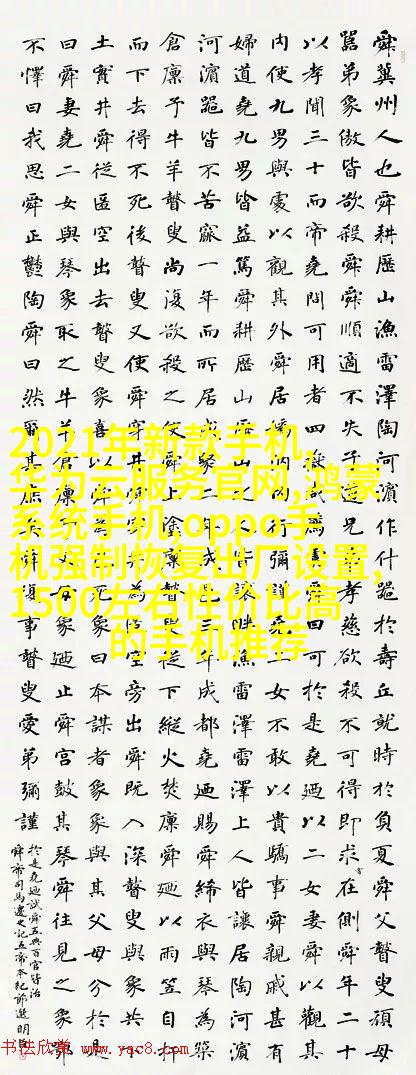 舜冀州人也舜耕歷山漁雷澤陶河濱作什器於壽丘就時於負夏舜父瞽叟頑母
嚚弟象傲皆欲殺舜舜順適不失子道兄弟孝慈欲殺不可得即求在側舜年二十
以孝聞三十而帝堯問可用者四嶽舜曰可於是堯廼以二女妻舜以觀其
内使九男與處以觀其外舜居媯汭内行彌謹堯二女不敢以貴驕事舜親戚甚有
婦道堯九男皆益篤舜耕歷山歷山之人皆讓畔漁雷澤雷澤上人皆讓居陶河濱
河濱器皆不苦窳一年而所居成聚二年成邑三年成都堯廼賜舜絺衣與琴為築
倉廩予牛羊瞽叟尚復欲殺之使舜上塗廩瞽叟從下縱火焚廩舜廼以兩笠自扞
而下去得不死後瞽叟又使舜穿井舜穿井為匿空旁出舜既入深瞽叟與象共下
土實井舜從匿空出去瞽叟象喜以舜為已死象曰本謀者象象與其父母分於是
曰舜妻堯二女與琴象取之牛羊倉廩予父母象廼止舜宮鼓其琴舜往見之象鄂
不懌曰我思舜正鬱陶舜曰然爾其庶矣舜復事瞽叟愛弟彌謹
於是堯廼試舜五典百官皆治
舜帝司馬遷史記五帝本紀節選
2021年新款手机,
华为云服务官网,鸿蒙
系统手机,oppo手
机强制恢复出厂设置,
1500左右性价比高
的手机推荐
书法欣赏 www.yac8.com